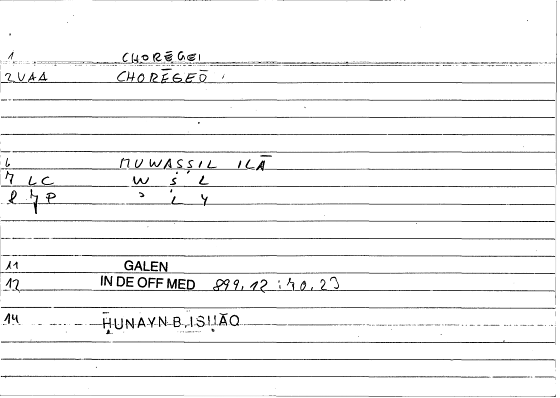 1 CHORĒGEI
2 VAA CHORĒGEŌ
6 MUWAṢṢIL ILĀ
7 LC W Ṣ L
8 7P ʾ L Y
11 GALEN
12 IN DE OFF MED 899,12 : 40,23
14 ḤUNAYN B. ISḤĀQ